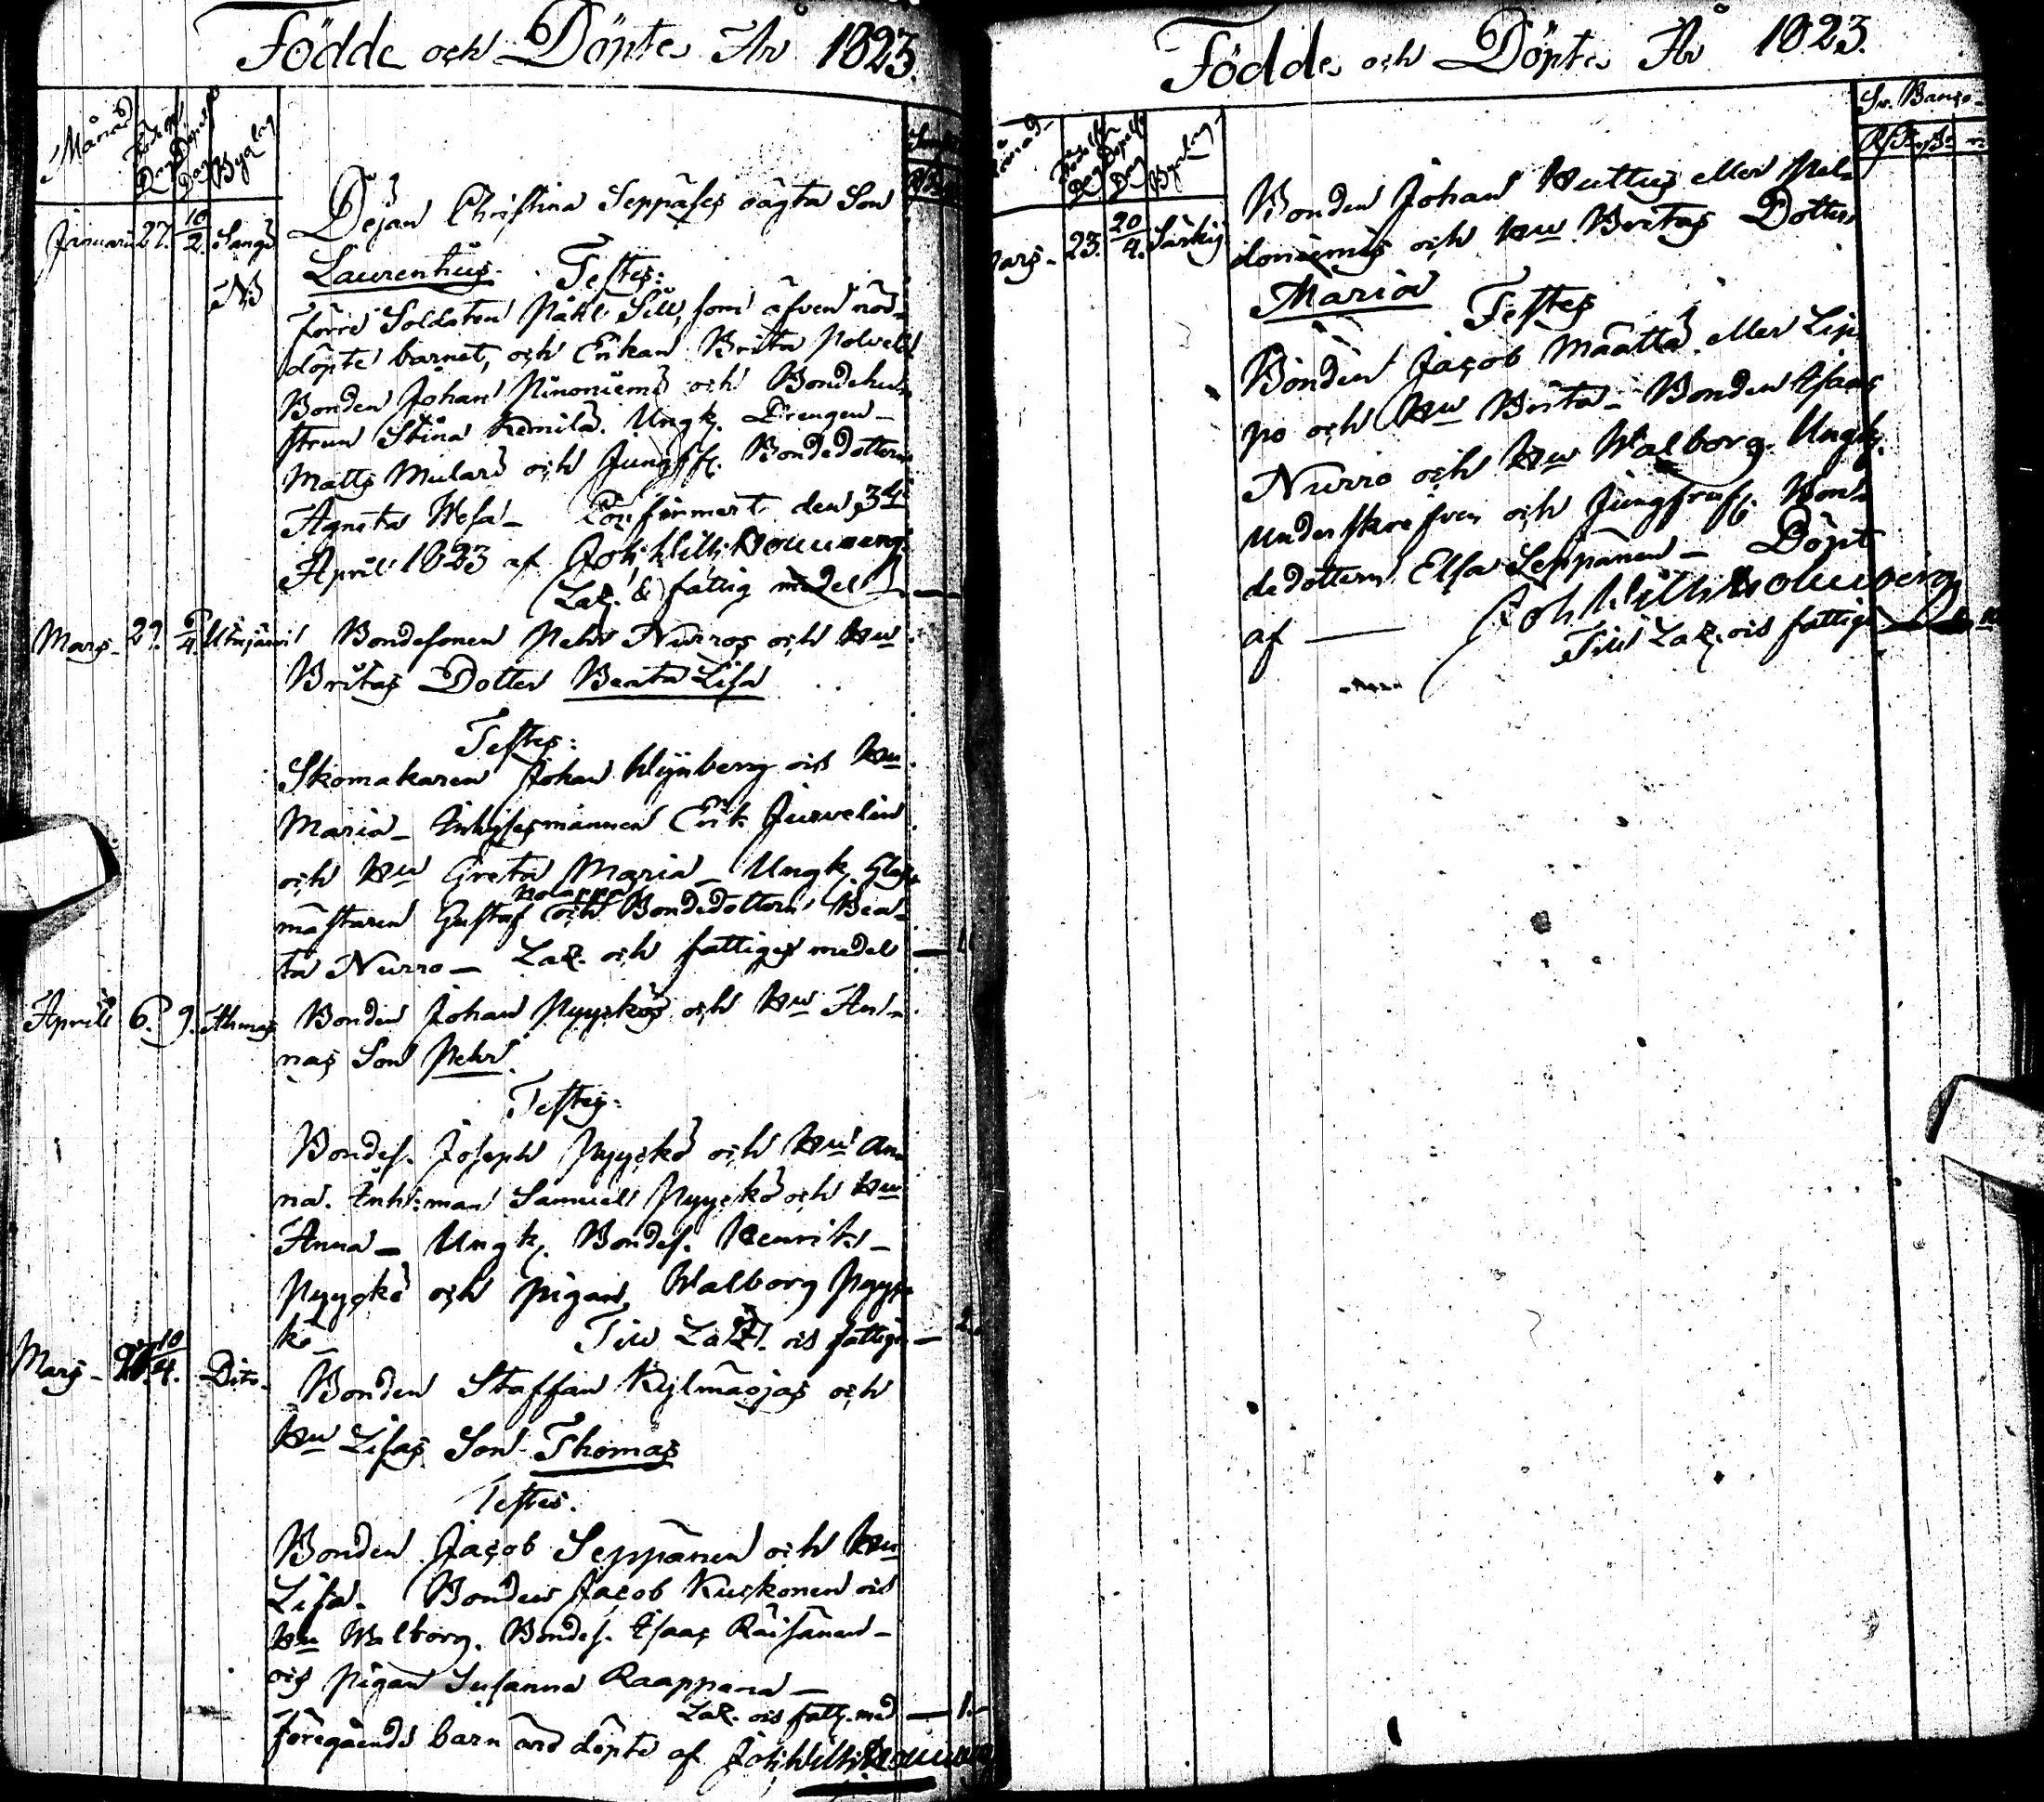 Födde och Döpte År 1823.
Månad Födelse Dag Döpelse Dag Byalag
Januari 27. 10/2. Sangi Dejan Christina Seppäses oägta Son
Laurentius. Testes:
NB
förre Soldaten Påhl Sill, som äfven nöd-
döpte barnet, och Enkan Brita
Bonden Johan Niironiemi och Bondehu-
strun Stina Kemilä. Ungk. Drengen
Matts Mulari och Jungfr. Bondedottern
Agneta Wesa – Confirmert den 3de
April 1823 af Joh. Will.
Laz. & fattig medel –
Mars – 29. 6/4 Utajärvi Bondesonen Pehr Nurros och Hu
Britas Dotter Beata Lisa
Testes:
Skomakaren Johan Wynberg och Hu
Maria – Inhysesmannen Erik Jurvelin
och Hu Greta Maria – Ungk. Glas-
mästaren Gustaf Kolappa och Bondedottern Bea-
ta Nurro – Laz. och fattiges medel – 1
April 6. 9. Ahmas Bonden Johan Pyykös och Hu An-
nas Son Pehr.
Testes:
Bondes. Joseph Pyykö och Hu An-
na. Inh:man Samuel Pyykö och Hu
Anna – Ungk. Bondes. Henrik
Pyykö och pigan Walborg Pyy-
kö – Till Laz. och fattige – 2.
Mars – 10/4. Dito – Bonden Staffan Kylmäojas och
Hu Lisas Son Thomas
Testes.
Bonden Jacob Seppänen och Hu
Lisa. Bonden Jacob Kuskonen och
Hu Walborg. Bondes. Isaac Räisänen –
och Pigan Susanna Raappana –
Laz. och fatt. med – 1.
föregående barn äro döpte af Joh. Will.
Födde och Döpte År 1823.
Månad Födelse Dag Döpelse Dag Byalag Sv. Banco
Mars – 23. 20/4. Särkij Bonden Johan Huttus eller Pel-
doniemis och Hu Britas Dotter
Maria
Testes
Bonden Jacob Määttä eller Lip-
po och Hu Brita – Bonden Isaac
Nurro och Hu Walborg. Ungk.
underskrefven och Jungfruf. Bon-
dedottern Elsa Seppänen – Döpt
af — Joh. Will.
Till Laz. och fattige